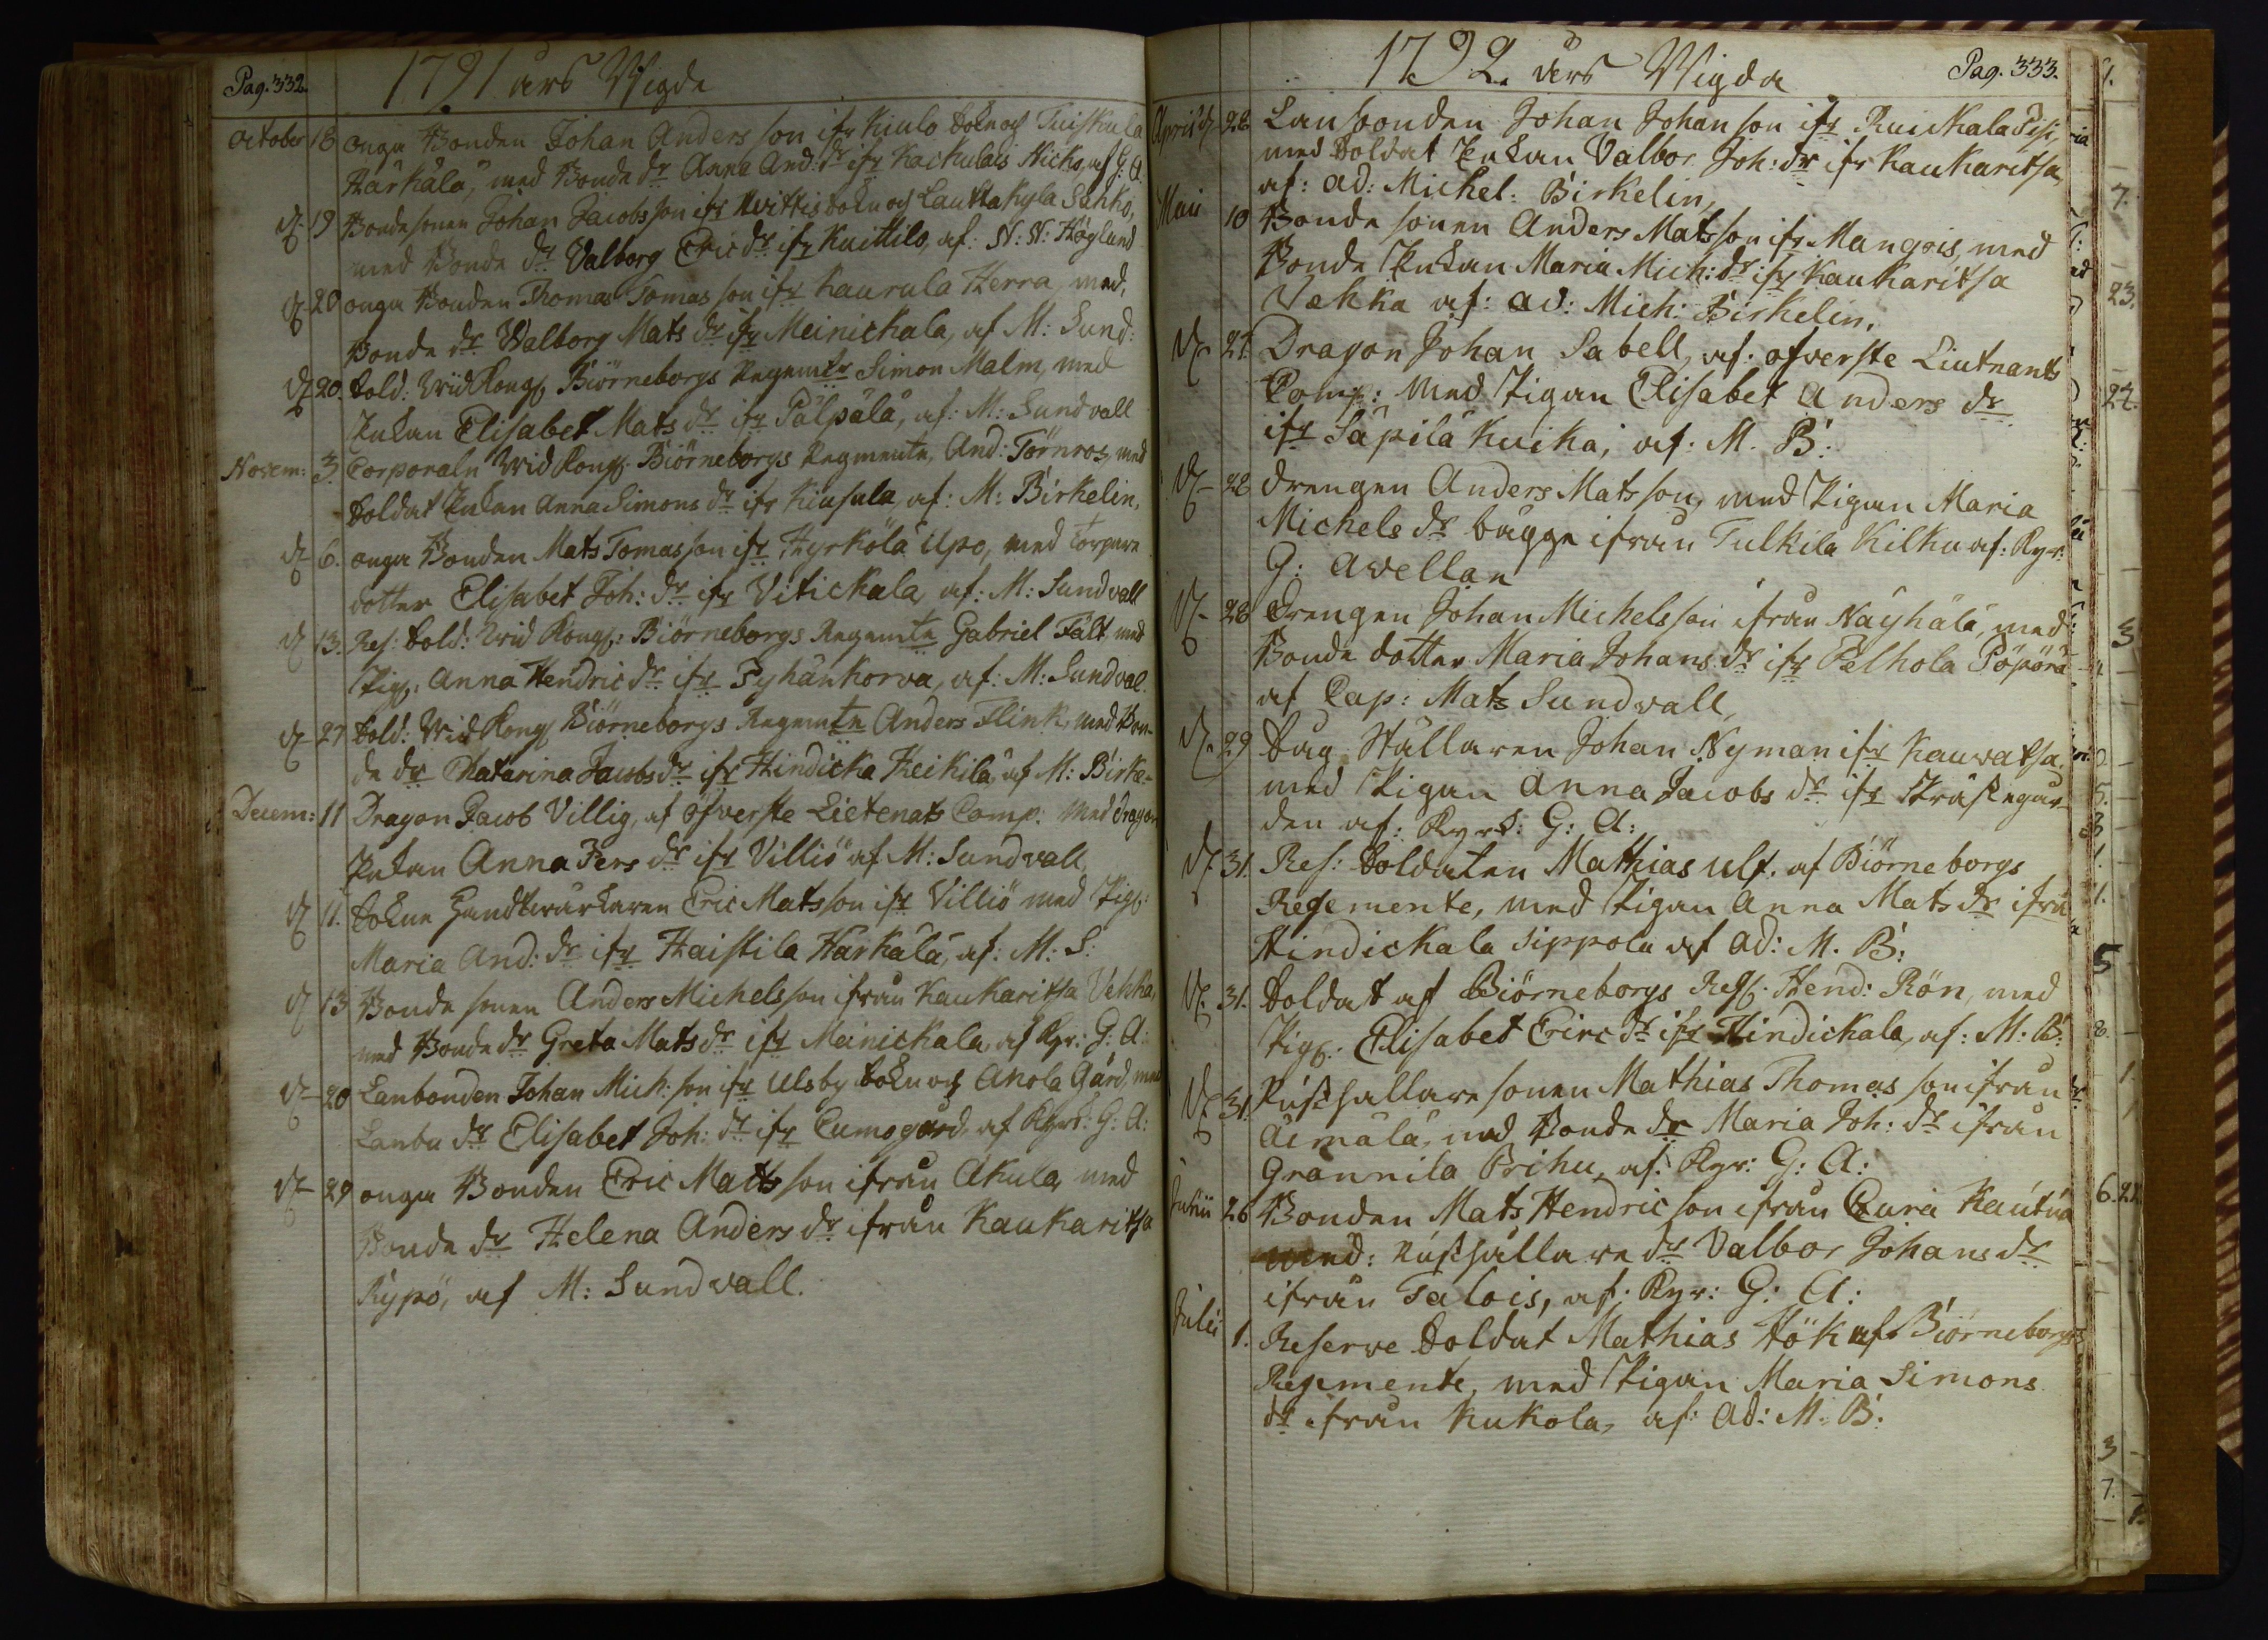 Pag. 332.
1791 års Wigde
October 18 unga Bonden Johan Anders son ifr Kiulo Sokn och Tuiskula
Härkälä, med Bonde dr Anna And: dr ifr Kackulais Nicko, af G: A.
d 19 Bonde sonen Johan Jacobs son ifr Hvittis Sokn och Lauttakyla Sahko,
med Bonde dr Valborg Eric dr ifr Kuittilo, af: N: N: Höglund
d 20 unga Bonden Thomas Tomas son ifr Kaurula Herra med,
Bonde dr Walborg Mats dr ifr Meinickala, af M: Sund:
d 20. Sold: Wid Kongl Biörneborgs Regemte Simon Malm, med
Enkan Elisabet Mats dr ifr Pälpälä, af: M: Sundvall
Novem: 3. Corporaln Wid Kongl. Biörneborgs Regmente, And: Törnros, med
Soldat Enkan Anna Simons dr ifr Kiusala, af: M: Birkelin,
d 6. unga Bonden Mats Tomas son ifr Hyrkölä Upo, med Torpare
dotter Elisabet Joh: dr ifr Vitickala, af: M: Sundvall
d 13. Res: Sold: Wid Kongl: Biörneborgs Regemte Gabriel Fält, med
Pig: Anna Hendric dr ifr Pyhänkorva, af: M: Sundval.
d 27 Sold: Wid Kong Biörneborgs Regemte Anders Flink, med Bon-
de dr Chatarina Jacobs dr ifr Hindicka Heikilä, af M: Birke-
Decem: 11 Dragon Jacob Villig, af öfverste Lietenats Comp: med Dragon
Enkan Anna Pers dr ifr Villiö af M: Sundvall,
d 11. Sokne Handtvärkaren Eric Mats son ifr Villiö med Pig:
Maria And: dr ifr Haistila Härkälä, af: M: S:
d 13 Bonde sonen Anders Michels son ifrån Kaukaritsa Vehka,
med Bonde dr Greta Mats dr ifr Meinickala, af Kyr: G: A:
d 20 Lanbonden Johan Mich: son ifr Ulsby Sokn och Anola Gård, med
Lanbo dr Elisabet Joh: dr ifr Cumogård, af Kyrk: G: A:
d 29 unga Bonden Eric Matts son ifrån Akula, med
Bonde dr Helena Anders dr ifrån Kaukaritsa
Rypö, af M: Sundvall.
1792. års Wigda
Pag. 333.
April d 22 Lanbonden Johan Johan son ifr Ruickala Pisi,
med Soldat Enkan Valbor Joh: dr ifr Kaukaritsa,
af: ad: Michel: Birkelin,
Maii 10 Bonde sonen Anders Mats son ifr Mangois, med
Bonde Enkan Maria Mich: dr ifr Kaukaritsa
Vekka af: ad: Mich: Birkelin.
d 27. Dragon Johan Sabell, af: ofverste Liutnants
Comp: med Pigan Elisabet Anders dr
ifr Säpilä Kuika, af: M. B:
d 28 Drengen Anders Mats son, med Pigan Maria
Michels dr bägge ifrån Tulkila Kilku af: Kyr:
G: Avellan
d 28 Drengen Johan Michels son ifrån Näyhälä, med
Bonde dotter Maria Johans dr ifr Pelhola Pöpörä
af Cap: Mats Sundvall,
d. 29 Såg Ställaren Johan Nyman ifr Kauvatsa,
med Pigan Anna Jacobs dr ifr Träskegår
den af: Kyrk: G: A:
d. 31. Res: Soldaten Mathias Ulf. af Biörneborgs
Regemente, med Pigan Anna Mats dr ifrå
Hindickala Sippola af ad: M. B:
d. 31. Soldat af Biörneborgs Reg. Hend: Rön, med
Pig. Elisabet Eric dr ifr Hindickala, af: M: B:
d. 31. Rusthallare sonen Mathias Thomas son ifrån
Äimälä, med Bonde dr Maria Joh: dr ifrån
Grannila Prihu, af: Kyr: G: A:
Junii 26 Bonden Mats Hendric son ifrån Eura Kautua
med: Rusthållare dr Valbor Johans dr
ifrån Talois, af: Kyr: G: A:
Julii 1. Reserve Soldat Mathias Hök af Biörneborgs
Regemente, med Pigan Maria Simons
dr ifrån Kukola, af: ad: M: B.